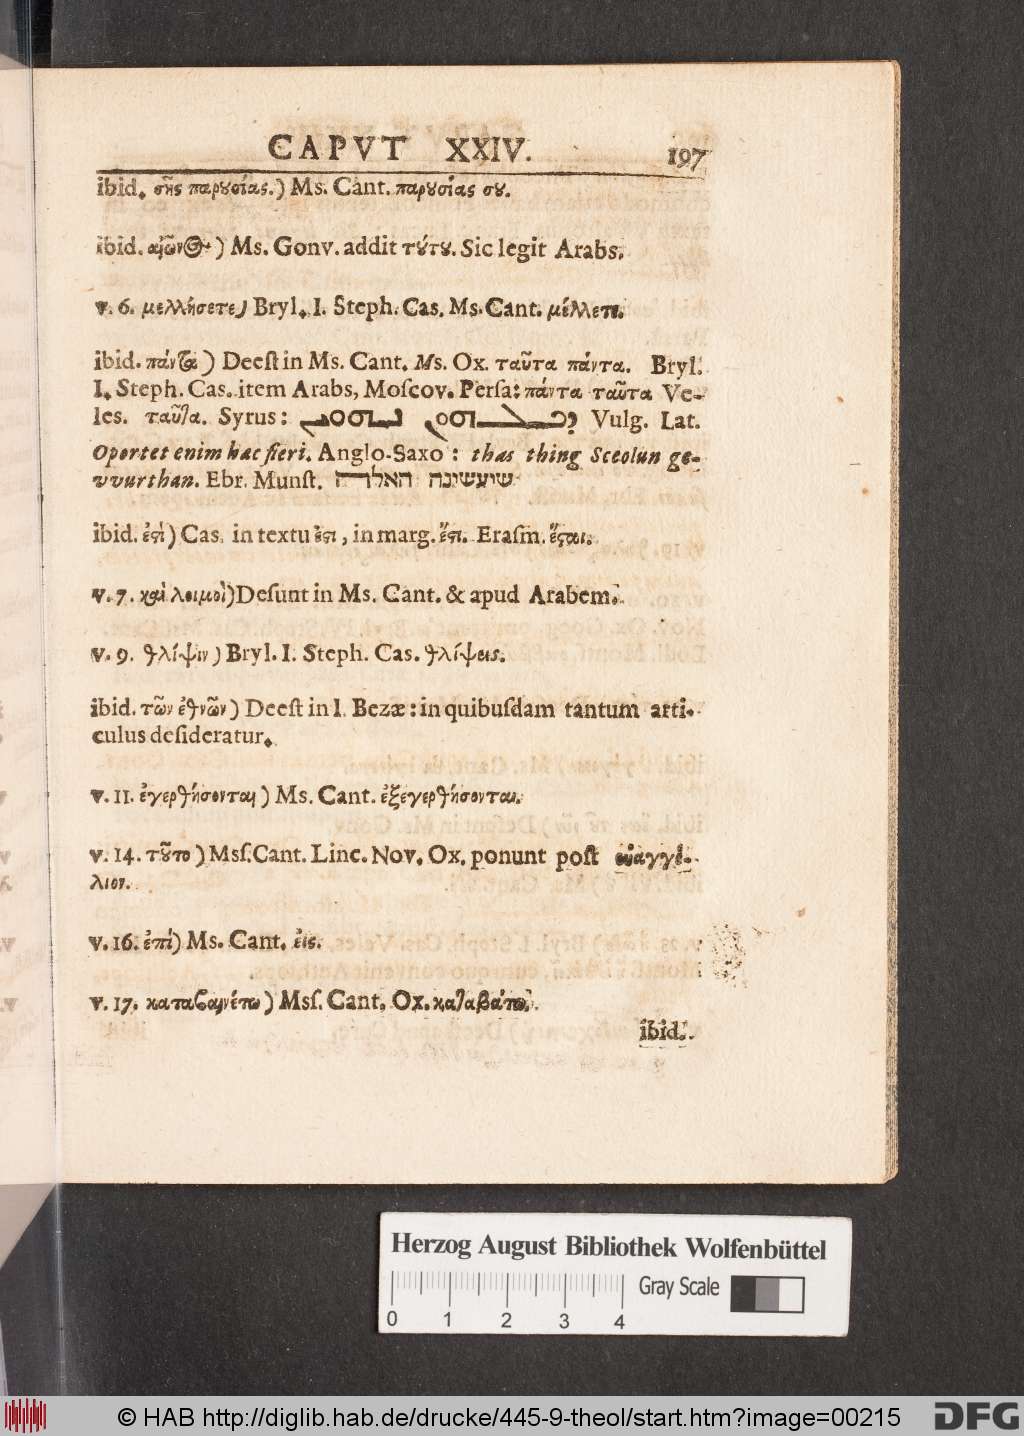 CAPVT XXIV. 197
ibid. σῆς παρουσίας.) Ms. Cant. παρουσίας σου.
ibid. αἰῶνος) Ms. Gonv. addit τούτου. Sic legit Arabs.
v. 6. μελλήσετε) Bryl. I. Steph. Cas. Ms. Cant. μέλλετε.
ibid. πάντα) Deeſt in Ms. Cant. Ms. Ox. ταῦτα πάντα. Bryl.
I. Steph. Cas. item Arabs, Moſcov. Perſa: πάντα ταῦτα Ve-
les. ταῦτα. Syrus: Vulg. Lat.
Oportet enim hæc fieri. Anglo-Saxo: thas thing Sceolun ge-
vvurthan. Ebr. Munſt. שיעשינה האלה
ibid. ἐπὶ) Cas. in textu ἐπι, in marg. ἔπι. Eraſm. ἔσαι.
v. 7. καὶ λοιμοὶ) Deſunt in Ms. Cant. & apud Arabem.
v. 9. θλίψιν) Bryl. I. Steph. Cas. θλίψεις.
ibid. τῶν ἐθνῶν) Deeſt in I. Bezæ: in quibuſdam tantum arti-
culus deſideratur.
v. 11. ἐγερθήσονται) Ms. Cant. ἐξεγερθήσονται.
v. 14. τοῦτο) Mſſ. Cant. Linc. Nov. Ox. ponunt poſt εὐαγγέ-
λιον.
v. 16. ἐπί) Ms. Cant. εἰς.
v. 17. καταβαινέτω) Mſſ. Cant. Ox. καταβάτω.
ibid.
Herzog August Bibliothek Wolfenbüttel
Gray Scale
0 1 2 3 4
© HAB http://diglib.hab.de/drucke/445-9-theol/start.htm?image=00215 DFG